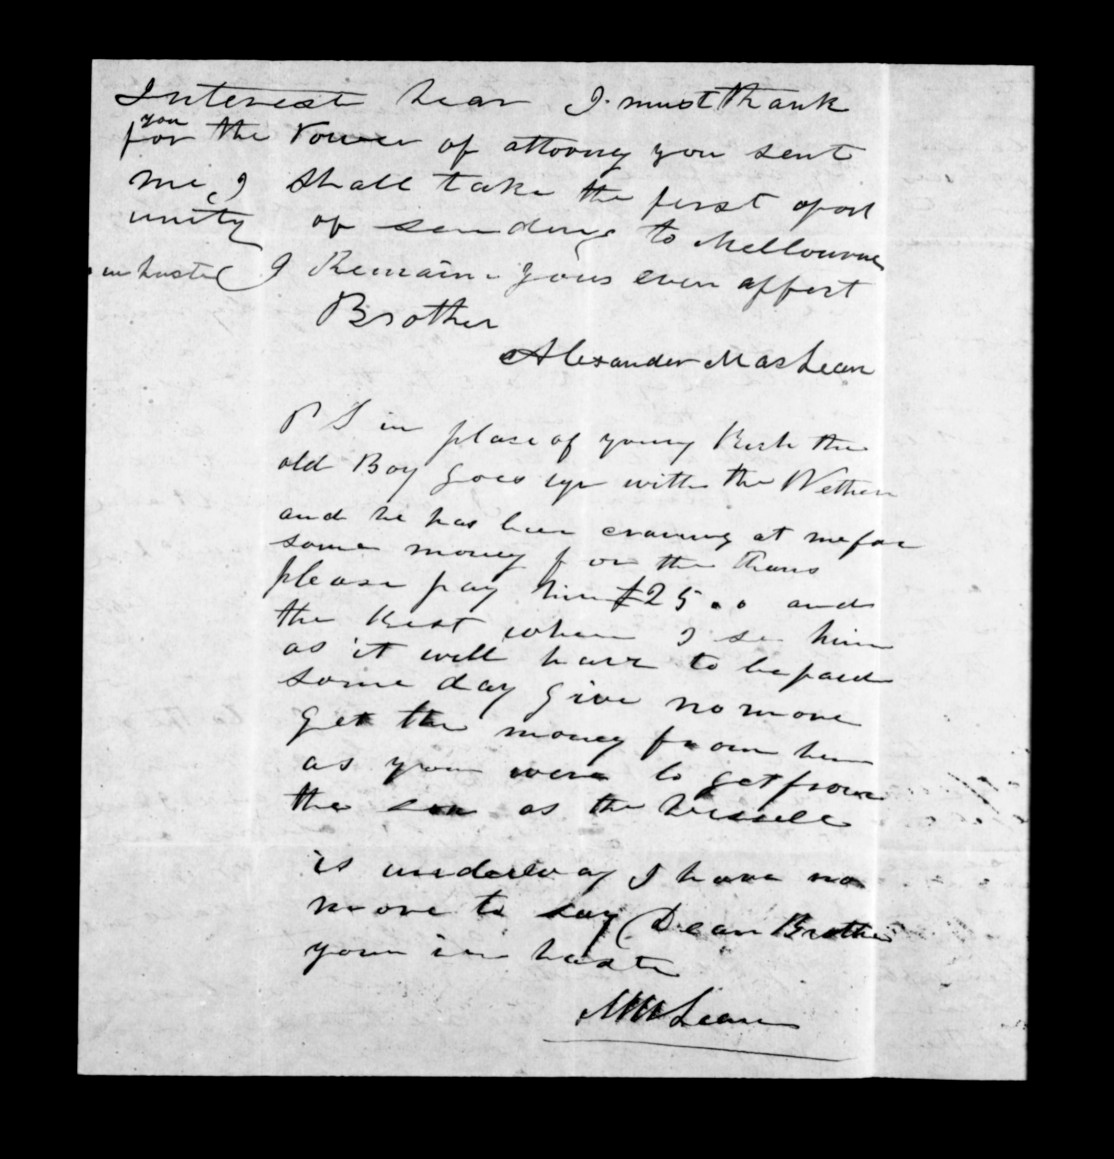 Interest hear I must thank
you
for the Power of attorney you sent
me I shall take the first oport
unity of sending to Mellourne
in haste I Remain yours ever affect
Brother
Alexander MacLean
P S in place of young the
old Boy goes up with the Wethers
and he has been craving at me for
some money for the Rams
please pay him £25.. and
the Rest when I see him
as it will have to be paid
some day give no more
get the money from him
as you were to get from
the son as the vessell
is underway I have no
more to say Dear Brother
your in haste
McLean